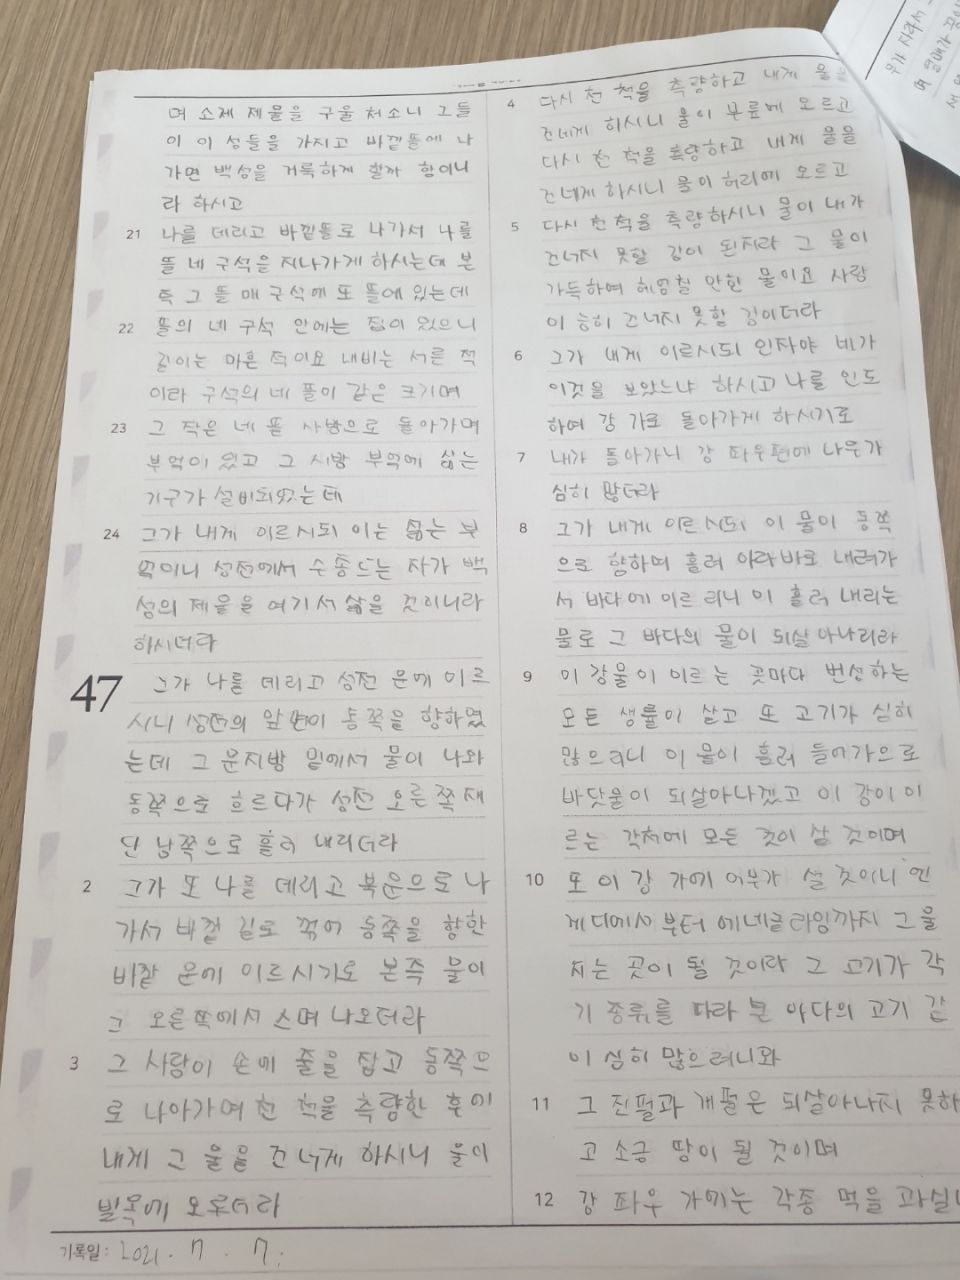 며 소제 제물을 구울 처소니 그들
이 이 성물을 가지고 바깥뜰에 나
가면 백성을 거룩하게 할까 함이니
라 하시고
21 나를 데리고 바깥뜰로 나가서 나를
뜰 네 구석을 지나가게 하시는데 본
즉 그 뜰 매 구석에 또 뜰이 있는데
22 뜰의 네 구석 안에는 집이 있으니
길이는 마흔 척이요 너비는 서른 척
이라 구석의 네 뜰이 같은 크기며
23 그 작은 네 뜰 사방으로 돌아가며
부엌이 있고 그 사방 부엌에 삶는
기구가 설비되었는데
24 그가 내게 이르시되 이는 삶는 부
엌이니 성전에서 수종드는 자가 백
성의 제물을 여기서 삶을 것이니라
하시더라
47 그가 나를 데리고 성전 문에 이르
시니 성전의 앞면이 동쪽을 향하였
는데 그 문지방 밑에서 물이 나와
동쪽으로 흐르다가 성전 오른쪽 제
단 남쪽으로 흘러 내리더라
2 그가 또 나를 데리고 북문으로 나
가서 바깥 길로 꺾여 동쪽을 향한
바깥 문에 이르시기로 본즉 물이
그 오른쪽에서 스며 나오더라
3 그 사람이 손에 줄을 잡고 동쪽으
로 나아가며 천 척을 측량한 후에
내게 그 물을 건너게 하시니 물이
발목에 오르더라
4 다시 천 척을 측량하고 내게 물을
건너게 하시니 물이 무릎에 오르고
다시 천 척을 측량하고 내게 물을
건너게 하시니 물이 허리에 오르고
5 다시 천 척을 측량하시니 물이 내가
건너지 못할 강이 된지라 그 물이
가득하여 헤엄칠 만한 물이요 사람
이 능히 건너지 못할 강이더라
6 그가 내게 이르시되 인자야 네가
이것을 보았느냐 하시고 나를 인도
하여 강 가로 돌아가게 하시기로
7 내가 돌아가니 강 좌우편에 나무가
심히 많더라
8 그가 내게 이르시되 이 물이 동쪽
으로 향하며 흘러 아라바로 내려가
서 바다에 이르리니 이 흘러 내리는
물로 그 바다의 물이 되살아나리라
9 이 강물이 이르는 곳마다 번성하는
모든 생물이 살고 또 고기가 심히
많으리니 이 물이 흘러 들어가므로
바닷물이 되살아나겠고 이 강이 이
르는 각처에 모든 것이 살 것이며
10 또 이 강 가에 어부가 설 것이니 엔
게디에서부터 에네글라임까지 그물
치는 곳이 될 것이라 그 고기가 각
기 종류를 따라 큰 바다의 고기 같
이 심히 많으려니와
11 그 진펄과 개펄은 되살아나지 못하
고 소금 땅이 될 것이며
12 강 좌우 가에는 각종 먹을 과실
기록일 : 2021. 7. 7.